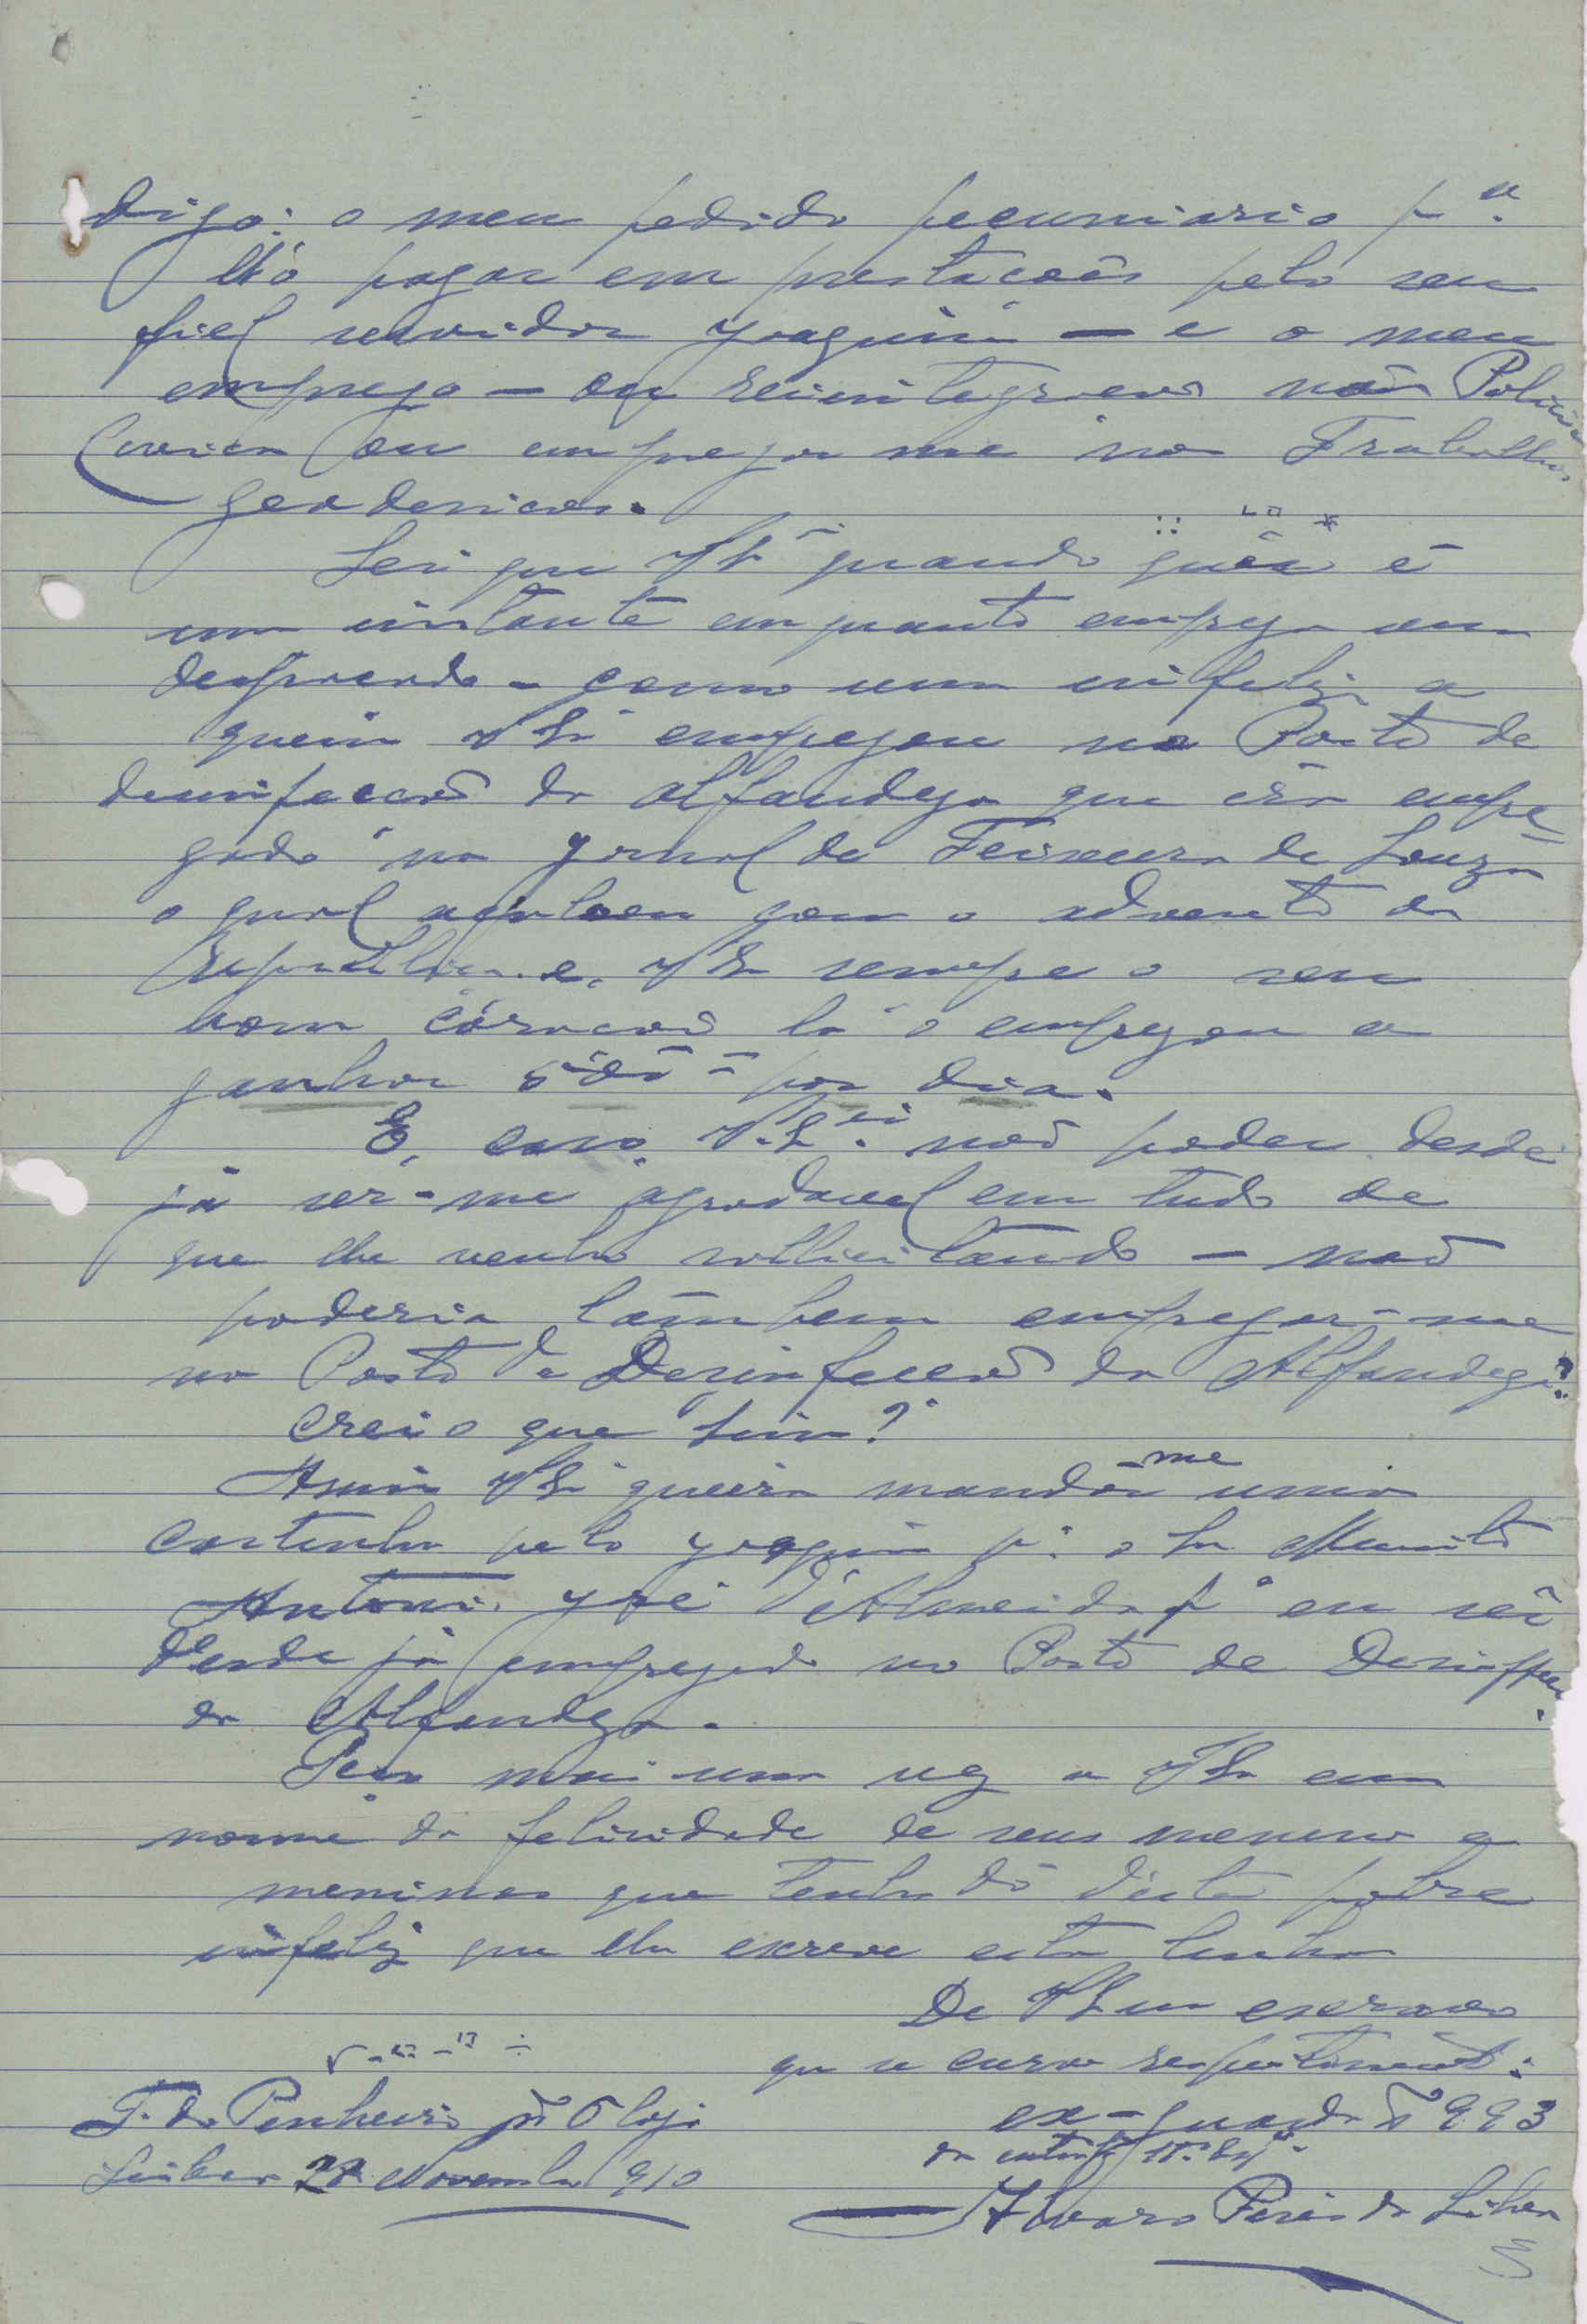 digo: o meu pedido pecuniario p.ª
lh'o pagar em prestacoês pelo seu
fiel servidor Joaquim — e o meu
emprego — ou reintegrar na Policia
Civica ou empregar me nos Trabalhos
geodesicos.
Sei que VSª quando quêr é
um instante em quanto emprega um
desgraçado - como um infeliz a
quem VSª empregou no Posto de
desinfeccaõ da Alfandega que éra empre-
gado no Jornal de Teixeira de Souza
o qual acabou com o advento da
Republica. e, VSª sempre o seu
bom córacaõ lá o empregou a
ganhar por dia.
E, caso, V.Sª. naõ poder desde
já ser-me agradavel em tudo de
que lhe venho sollicitando — naõ
poderia támbem empregar-me
no Posto de Desinfeccaõ da Alfandega?
creio que sim?
Assim VSª queira mandár-me uma
cartinha pelo Joaquim pª o Sr
Antonio José d'Almeida pª eu sêr
desde já empregado no Posto de Desinfec
da Alfandega.
Peço mais uma vez a VSª em
nome da felicidade de seus meninos e
meninas que tenha dó d'esta pobre
infeliz que lhe escreve esta linhas
De VSª um escravo
que se curva respeitosament:
ex-guarda nº 993
da
T. do Pinheiro nº 6 loja
Lisboa 28 Novembro 910
Alvaro Pires da Silva